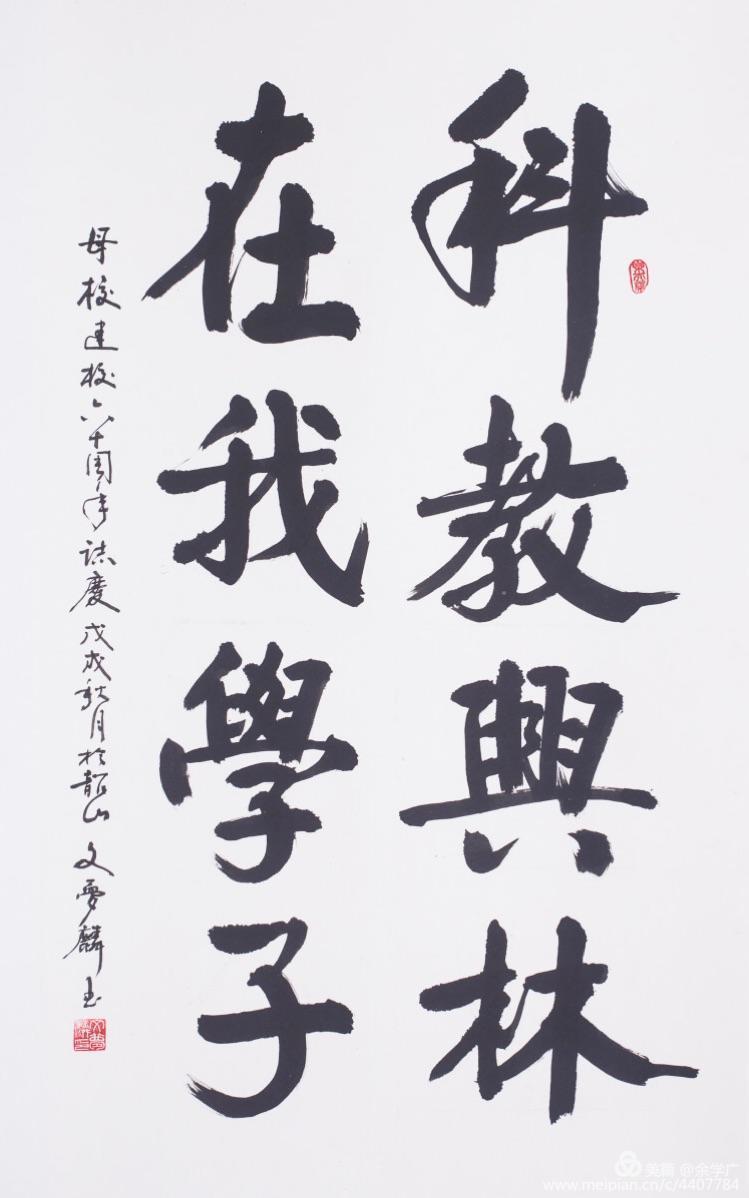 科教興林
在我學子
母校建校六十周年誌慶 戊戌秋月於韶山 文夢麟书
美篇 @余学广
www.meipian.cn/c/4407784